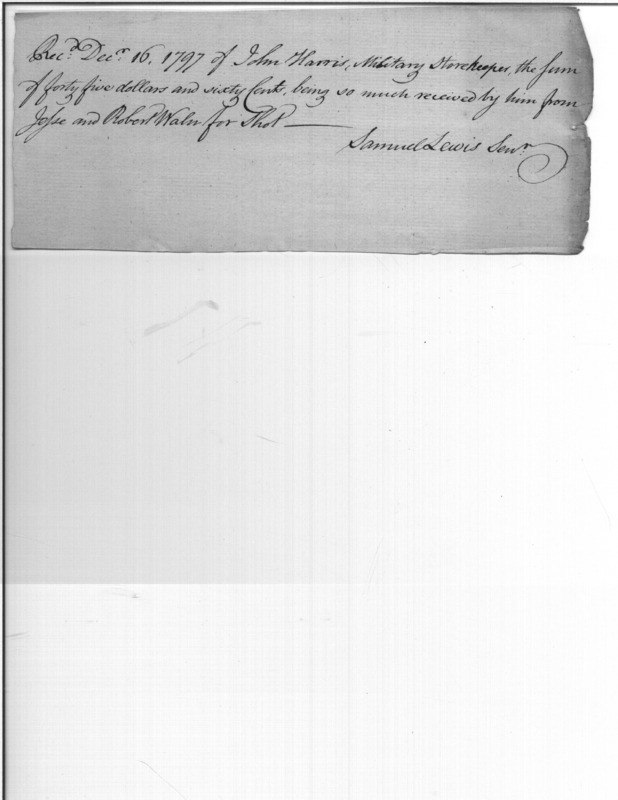 Rec.d Dec.r 16. 1797 of John Harris, Military Storekeeper, the sum
of forty five dollars and sixty Cents, being so much received by him from
Jesse and Robert Waln for Shot —
Samuel Lewis Sen.r